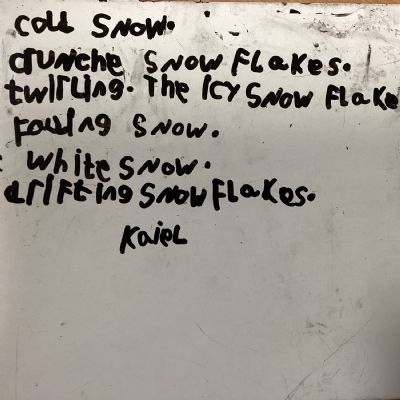 cold Snow.
crunche Snow Flakes.
twirling. The Icy Snow Flake
Fowing Snow.
White Snow.
drifting Snow Flakes.
Kaiel